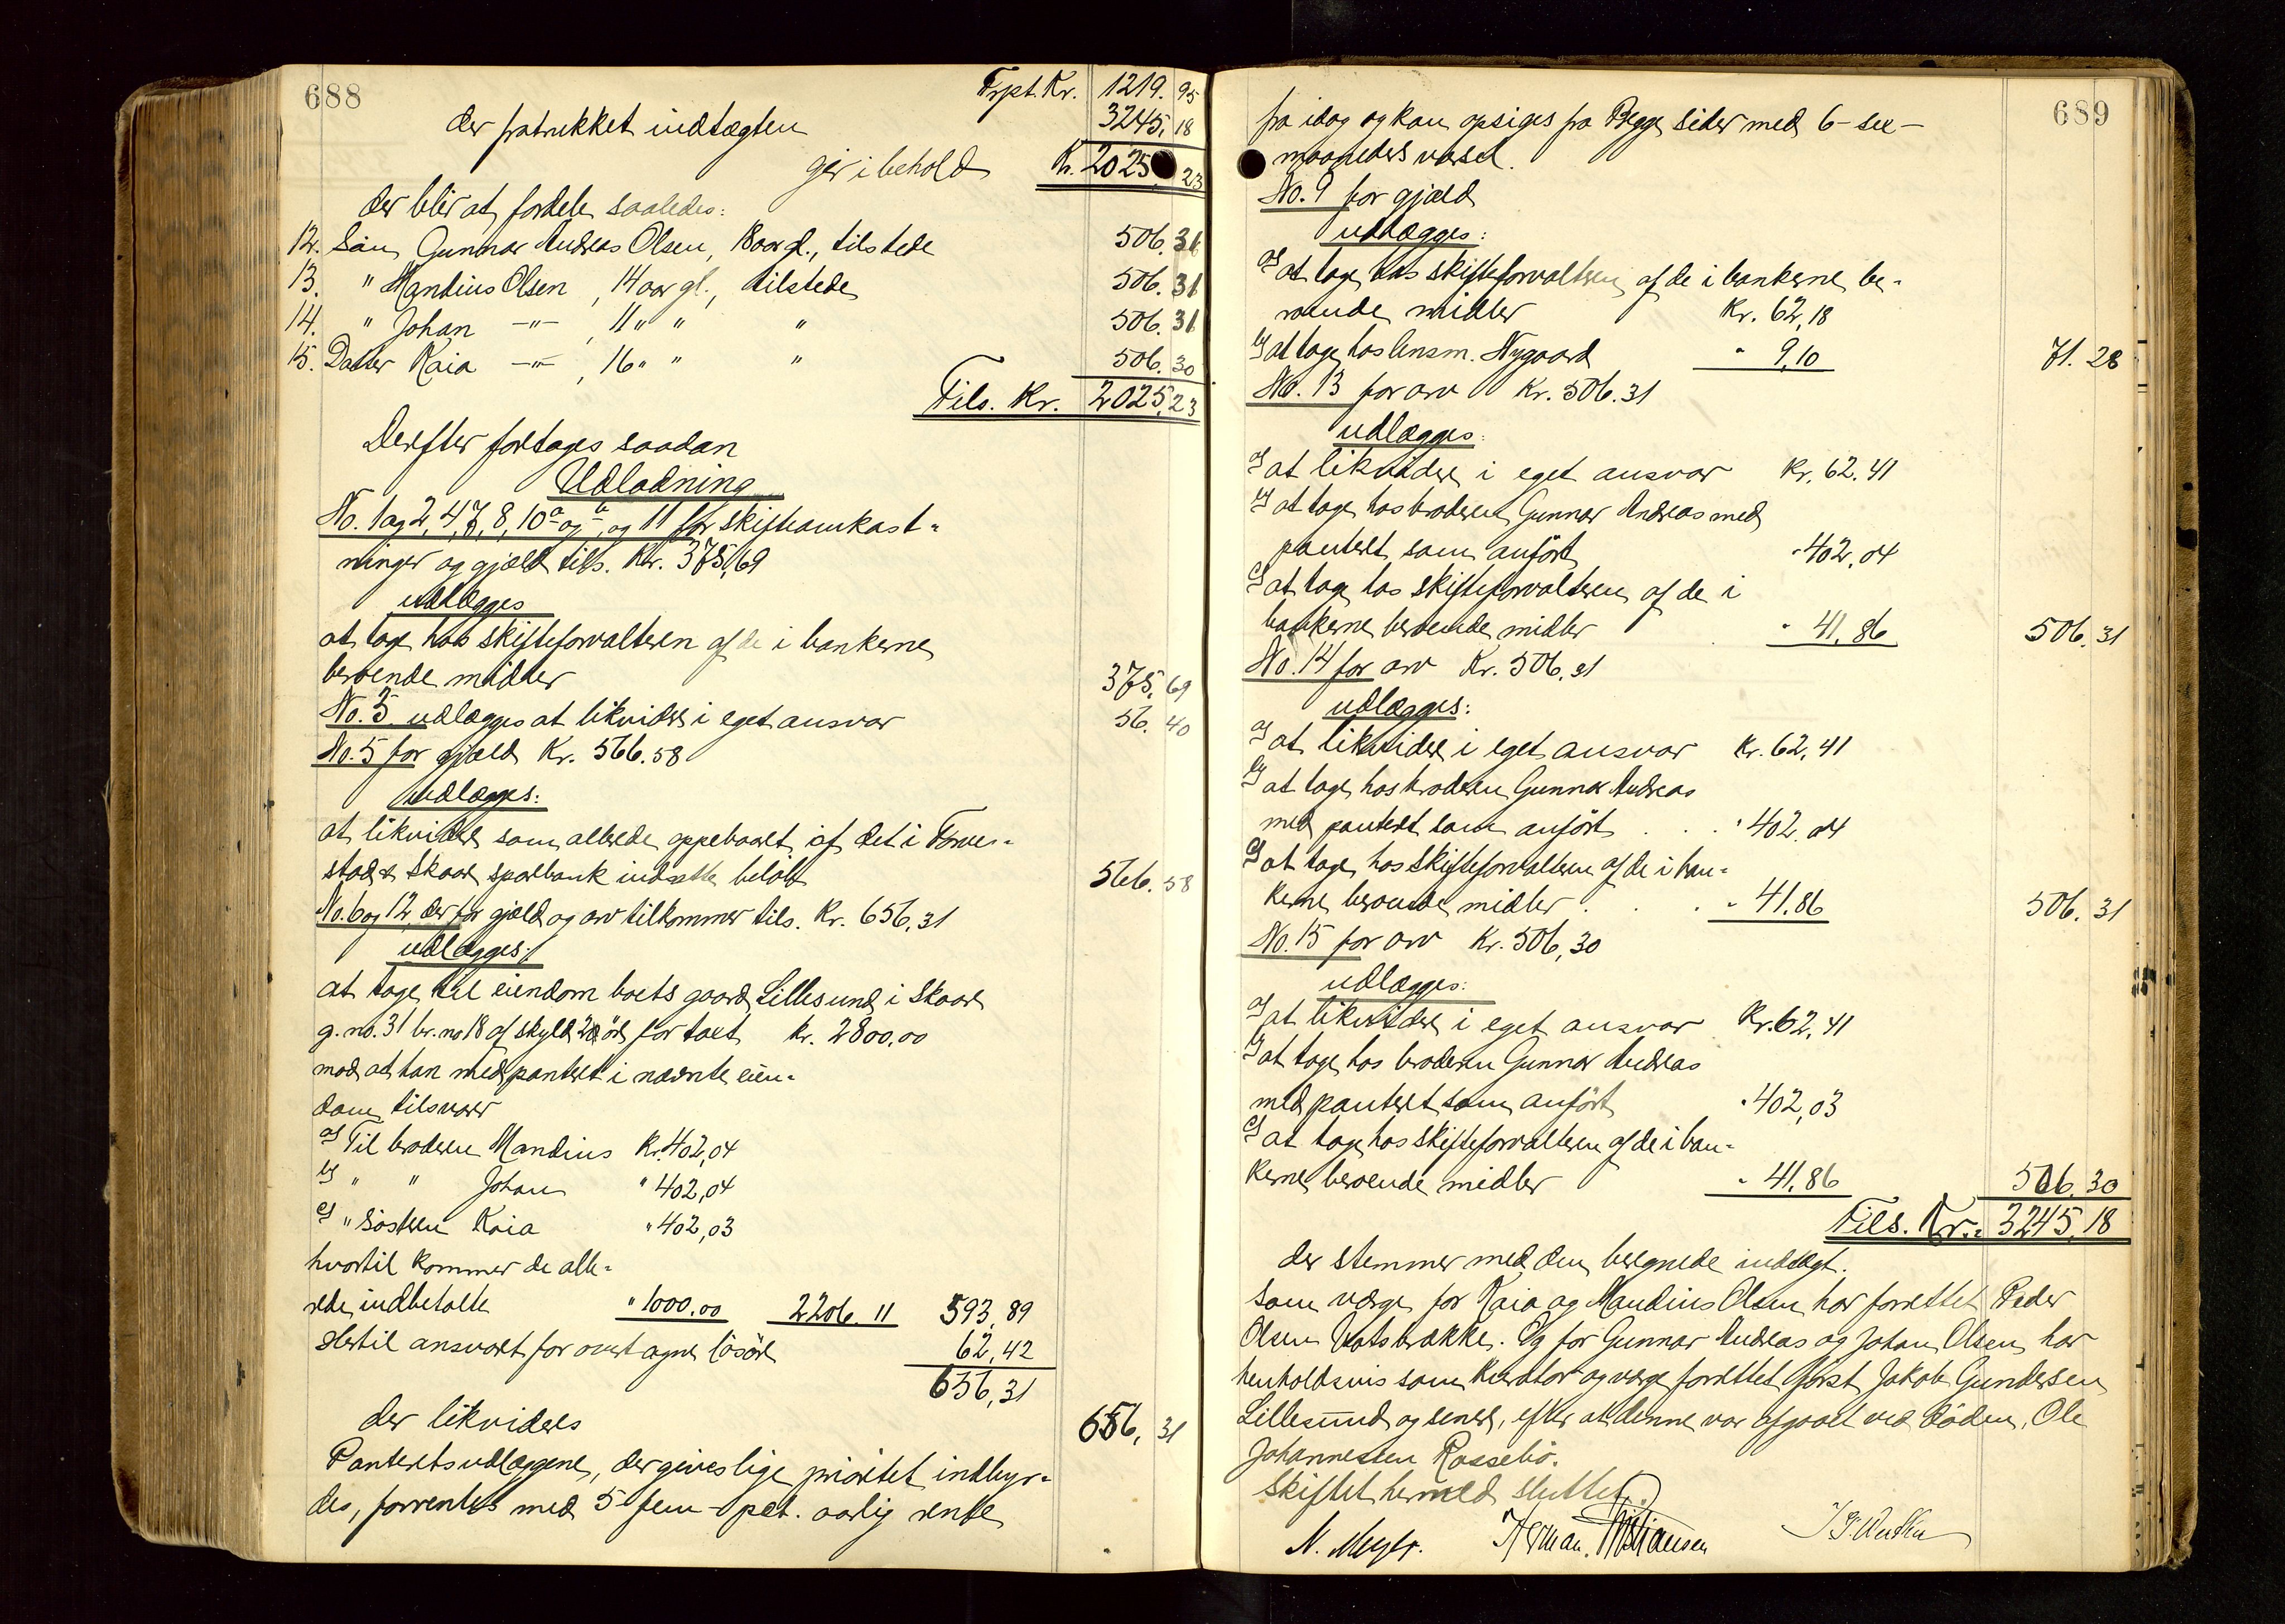 688
Trpt. Kr. 1219.95
der fratrukket indtægten 3245,18
gir i behold Kr. 2025.23
der blir at fordele saaledes:
12. Søn Gunnar Andreas Olsen, 18 aar gl., tilstede 506.31
13. " Mandius Olsen, 14 aar gl., tilstede 506.31
14. " Johan —"—, 11 " " " 506.31
15. Datter Kaia —"—, 16 " " " 506.30
Tils. Kr. 2025,23
Derefter foretages saadan
Udlodning
No. 1 og 2, 4, 7, 8, 10 a og b, og 11 for skifteomkost-
ninger og gjæld tils. Kr. 375,69
udlægges
at tage hos skifteforvalteren af de i bankerne
beroende midler 375,69
No. 3 udlægges at likvidere i eget ansvar 56.40
No. 5 for gjæld Kr. 566.58
udlægges:
at likvidere som allerede oppebaaret af det i Torve-
stad & Skaare sparebank indsatte beløb 566.58
No. 6 og 12 der for gjæld og arv tilkommer tils. Kr. 656,31
udlægges:
at tage til eiendom boets gaard Lillesund i Skaare
g. no. 31 br. no 18 af skyld 20 øre for taxt Kr. 2800,00
mod at han med panteret i nævnte eien-
dom tilsvarer
a) Til broderen Mandius Kr. 402,04
b) " " Johan " 402,04
c) " Søsteren Kaia " 402,03
hvortil kommer de alle-
rede indbetalte " 1000.00 2206.11 593,89
Hertil ansvaret for overtagne løsøre 62,42
656,31
der likvideres 656,31
Panteretsudlæggene, der gives lige prioritet indbyr-
des, forrentes med 5 - fem - pct. aarlig rente
689
fra idag og kan opsiges fra Begge sider med 6 - sex -
maaneders varsel.
No. 9 for gjæld
udlægges:
a) at tage hos skifteforvalteren af de i bankerne be-
roende midler Kr. 62,18
b) at tage hos lensm. Nygaard " 9,10 71.28
No. 13 for arv Kr. 506.31
udlægges:
a) at likvidere i eget ansvar Kr. 62.41
b) at tage hos broderen Gunnar Andreas med
panteret som anført " 402,04
c) at tage hos skifteforvalteren af de i
bankerne beroende midler " 41,86 506.31
No. 14 for arv Kr. 506.31
udlægges:
a) at likvidere i eget ansvar Kr. 62,41
b) at tage hos broderen Gunnar Andreas
med panteret som anført . . " 402.04
c) at tage hos skifteforvalteren af de i ban-
kerne beroende midler . . . " 41.86 506.31
No. 15 for arv Kr. 506,30
udlægges:
a) at likvidere i eget ansvar Kr. 62,41
b) at tage hos broderen Gunnar Andreas
med panteret som anført " 402,03
c) at tage hos skifteforvalteren af de i ban-
kerne beroende midler " 41.86 506.30
Tils. Kr.: 3245,18
der stemmer med den beregnede indtægt.
Som værge for Kaia og Mandius Olsen har forrettet Peder
Olsen Vatsbrække. Og for Gunnar Andreas og Johan Olsen har
henholdsvis som kurator og værge forrettet først Jakob Gundersen
Lillesund og senere, efter at denne var afgaaet ved døden, Ole
Johannessen Rossebø.
Skiftet hermed sluttet.
N. Meyer. Herman Kristiansen